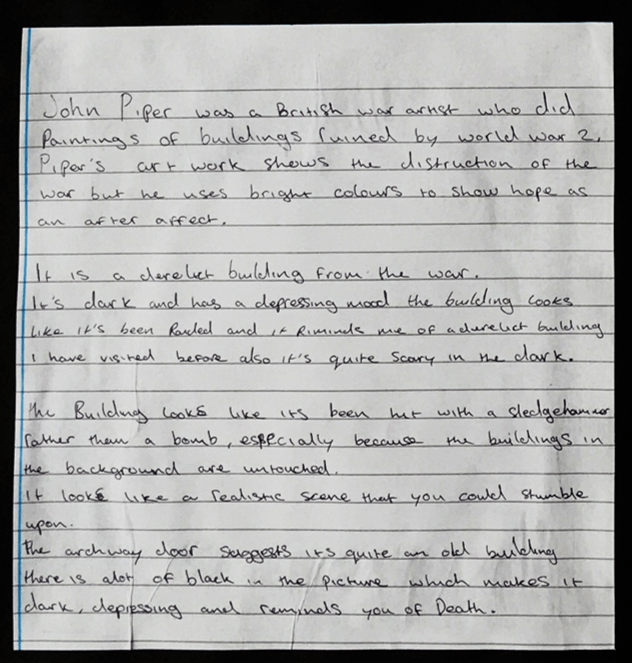 John Piper was a British war artist who did
Paintings of buildings ruined by world war 2.
Piper's art work shows the distruction of the
war but he uses bright colours to show hope as
an after affect.
It is a derelict building from the war.
It's dark and has a depressing mood the building looks
like it's been Raided and it Riminds me of a derelict building
I have visited before also it's quite scary in the dark.
the Building looks like its been hit with a sledgehammer
rather then a bomb, especially because the buildings in
the background are untouched.
It looks like a realistic scene that you could stumble
upon.
the archway door suggests its quite an old building
there is alot of black in the picture which makes it
dark, depressing and reminds you of Death.